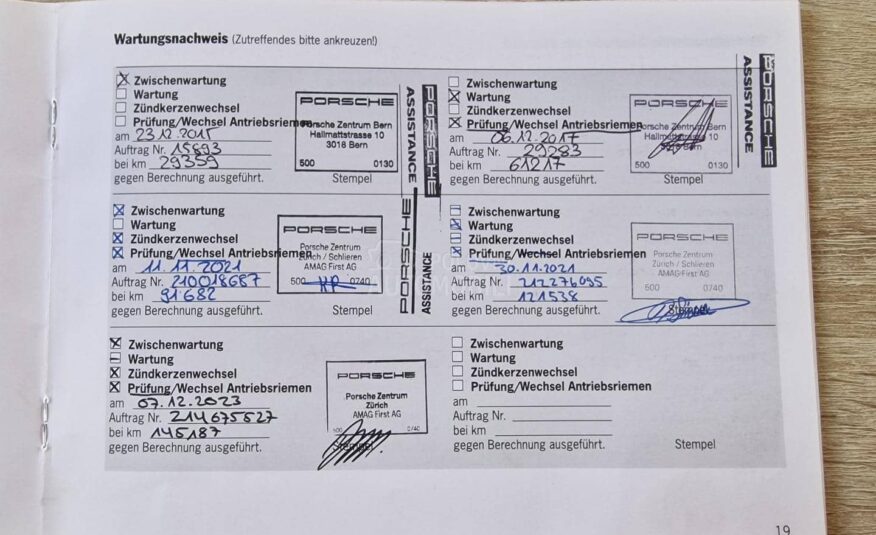 Wartungsnachweis (Zutreffendes bitte ankreuzen!)
Zwischenwartung
Wartung
Zündkerzenwechsel
Prüfung/Wechsel Antriebsriemen
am 23.12.2015
Auftrag Nr. 15893
bei km 29359
gegen Berechnung ausgeführt.
PORSCHE
Porsche Zentrum Bern
Hallmattstrasse 10
3018 Bern
500 0130
Stempel
PORSCHE
ASSISTANCE
Zwischenwartung
Wartung
Zündkerzenwechsel
Prüfung/Wechsel Antriebsriemen
am 06.12.2017
Auftrag Nr. 29283
bei km 61217
gegen Berechnung ausgeführt.
PORSCHE
Porsche Zentrum Bern
Hallmattstrasse 10
3018 Bern
500 0130
Stempel
PORSCHE
ASSISTANCE
Zwischenwartung
Wartung
Zündkerzenwechsel
Prüfung/Wechsel Antriebsriemen
am 11.11.2021
Auftrag Nr. 210018687
bei km 91682
gegen Berechnung ausgeführt.
PORSCHE
Porsche Zentrum
Zürich / Schlieren
AMAG First AG
500 0740
Stempel
PORSCHE
ASSISTANCE
Zwischenwartung
Wartung
Zündkerzenwechsel
Prüfung/Wechsel Antriebsriemen
am 30.11.2021
Auftrag Nr. 212276095
bei km 121538
gegen Berechnung ausgeführt.
PORSCHE
Porsche Zentrum
Zürich / Schlieren
AMAG First AG
500 0740
Stempel
Zwischenwartung
Wartung
Zündkerzenwechsel
Prüfung/Wechsel Antriebsriemen
am 07.12.2023
Auftrag Nr. 214675527
bei km 145187
gegen Berechnung ausgeführt.
PORSCHE
Porsche Zentrum
Zürich
AMAG First AG
500 0740
Stempel
Zwischenwartung
Wartung
Zündkerzenwechsel
Prüfung/Wechsel Antriebsriemen
am
Auftrag Nr.
bei km
gegen Berechnung ausgeführt.
Stempel
19